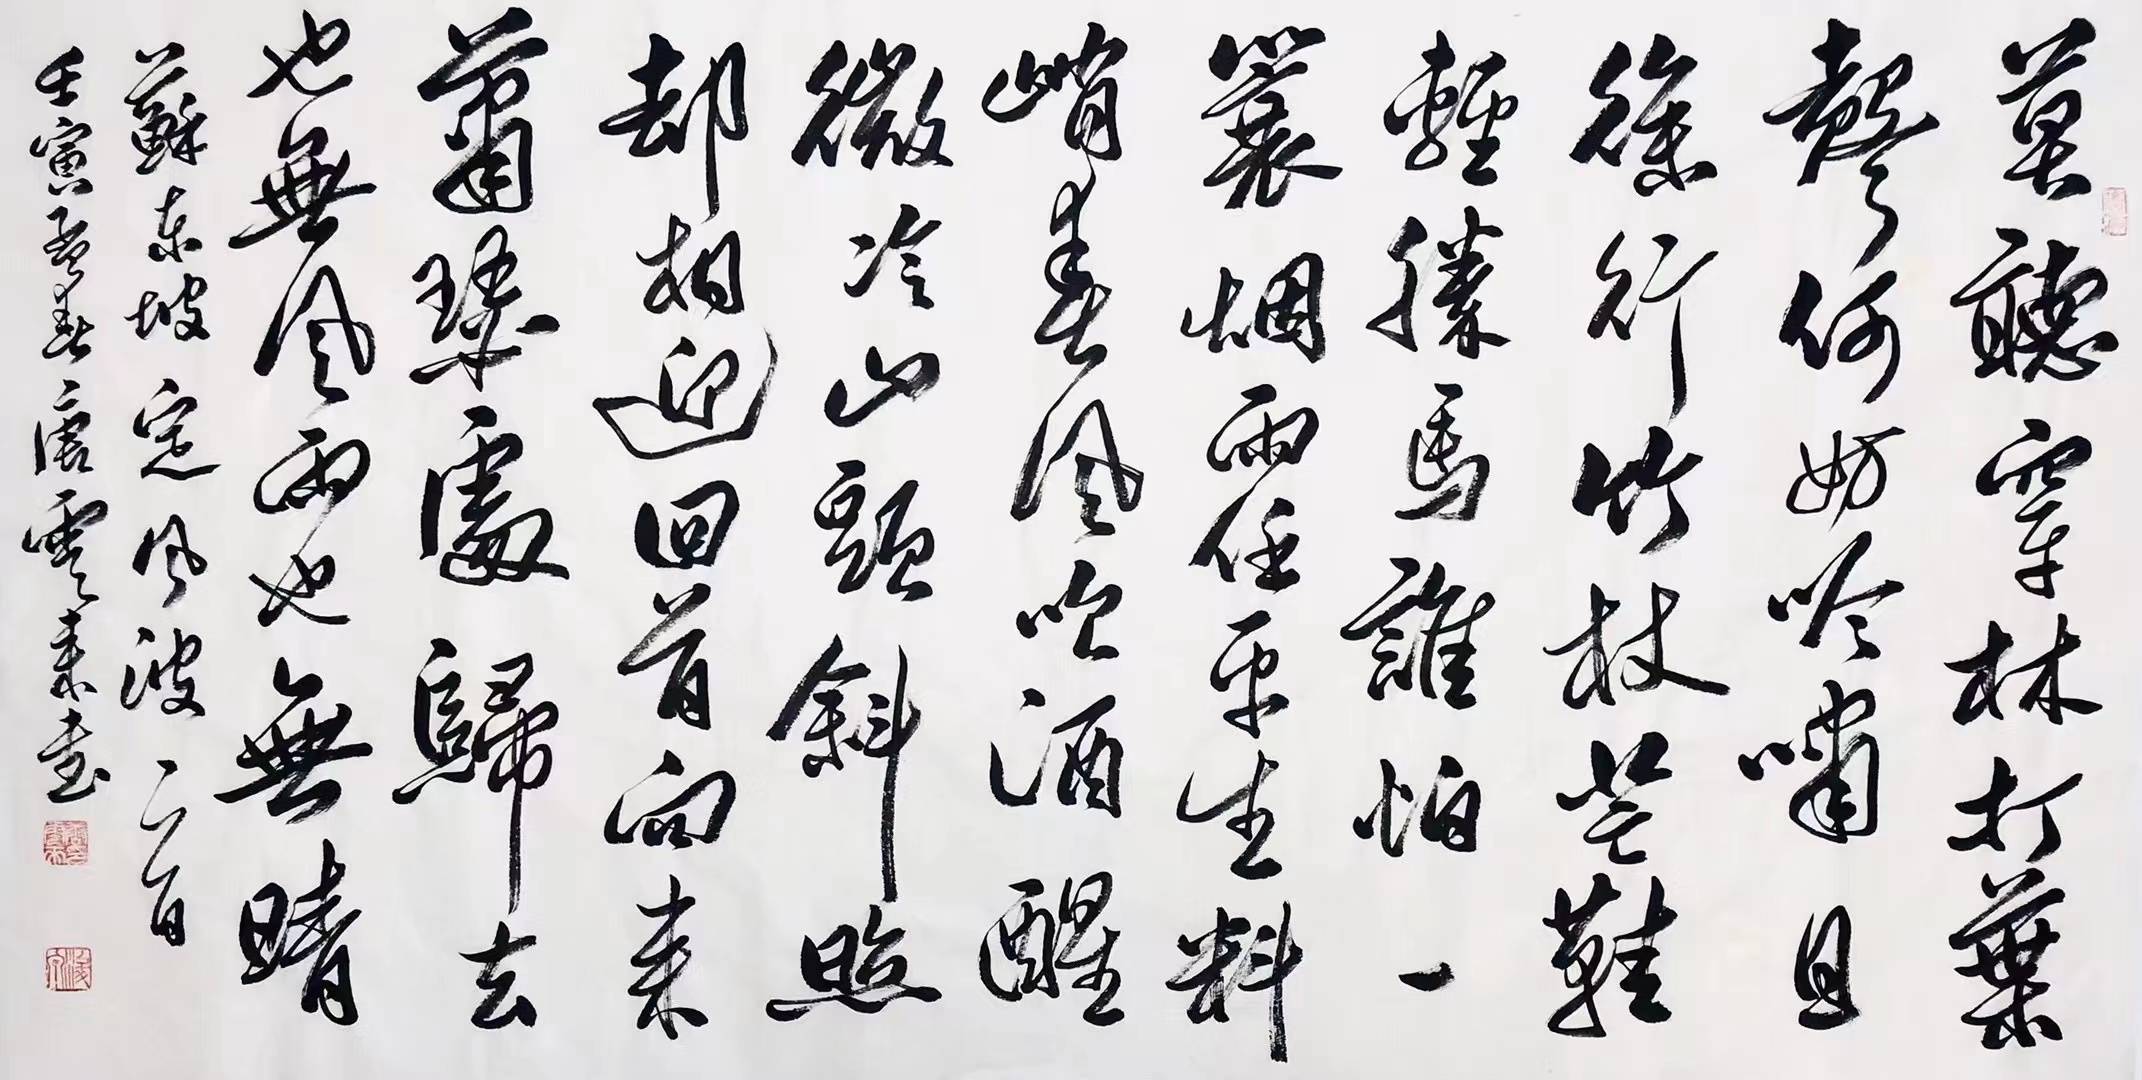 莫聽穿林打葉
聲何妨吟嘯且
徐行竹杖芒鞋
輕勝馬誰怕一
蓑烟雨任平生料
峭春風吹酒醒
微冷山頭斜照
却相迎回首向来
蕭瑟處歸去
也無風雨也無晴
蘇東坡定風波一首
壬寅孟春唐雲来書